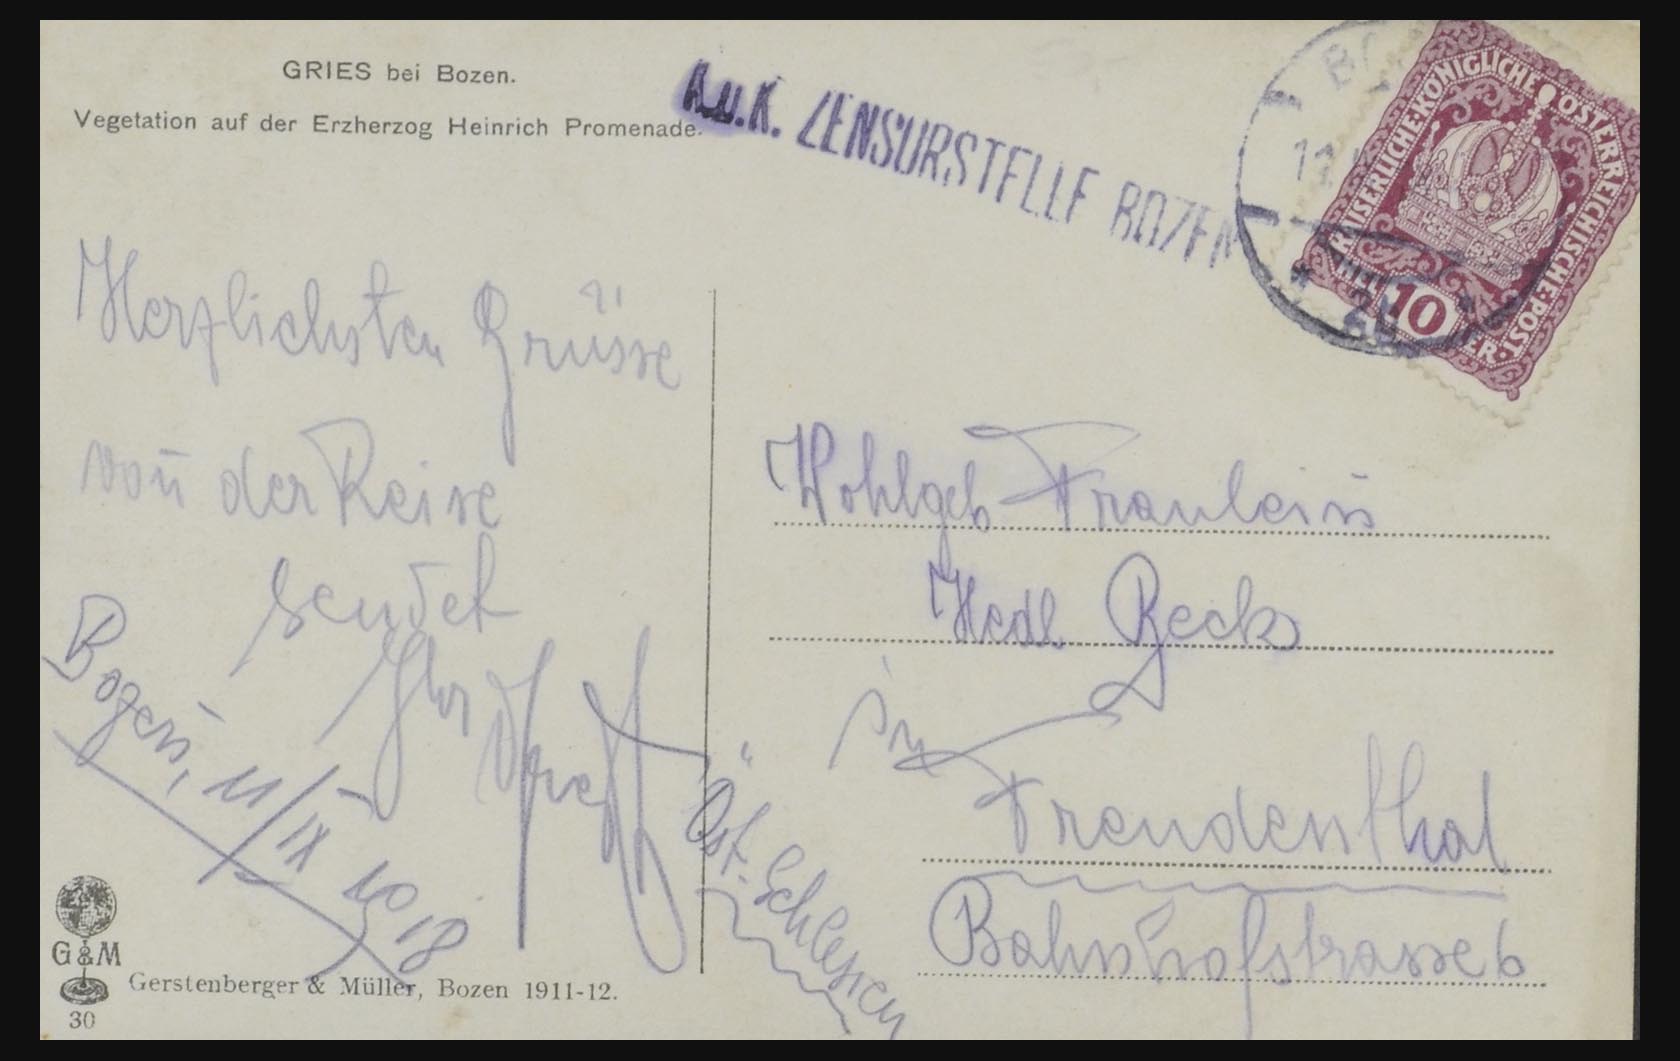 GRIES bei Bozen.
Vegetation auf der Erzherzog Heinrich Promenade.
K.u.K. ZENSURSTELLE BOZEN
KAISERLICHE·KÖNIGLICHE ÖSTERREICHISCHE·POST
10
HELLER
Herzlichsten Grüsse
von der Reise
sendet
Ihr
Bozen, 11/IX 1918
Wohlgeb Fraulein
Hedl Beck
in
Freudenthal
Öst.-Schlesien
Bahnhofstrasse 6
G&M
Gerstenberger & Müller, Bozen 1911-12.
30